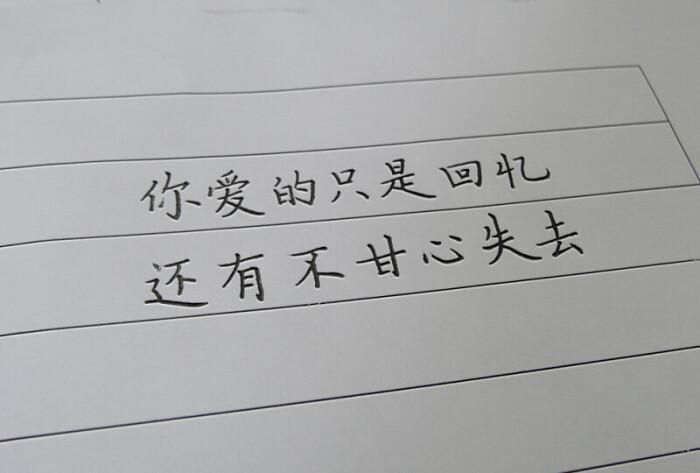 你爱的只是回忆
还有不甘心失去